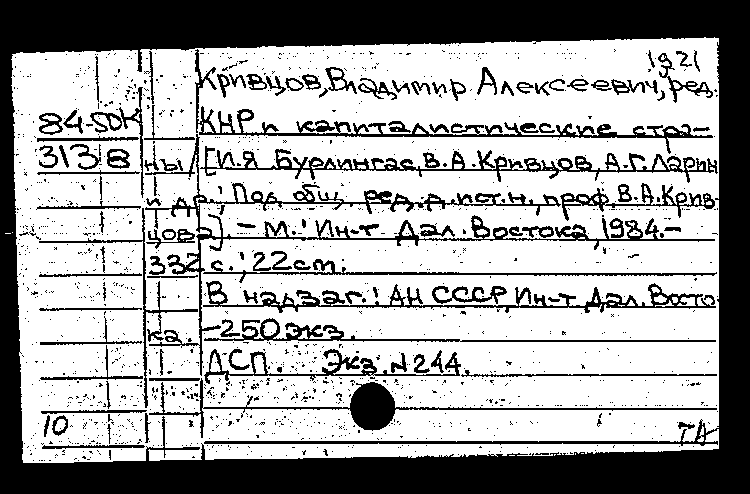 1921
Кривцов, Владимир Алексеевич, ред.
84-SDK КНР и капиталистические стра-
3138 ны / [И.Я. Бурлингас, В.А. Кривцов, А.Г. Ларин
и др.; Под общ. ред. д. ист. н., проф. В.А. Крив-
цова]. - М.: Ин-т Дал. Востока, 1984.-
332 с.; 22 cm.
В надзаг.: АН СССР, Ин-т Дал. Восто-
ка. -250 экз.
ДСП. Экз. N 244.
10 ТА